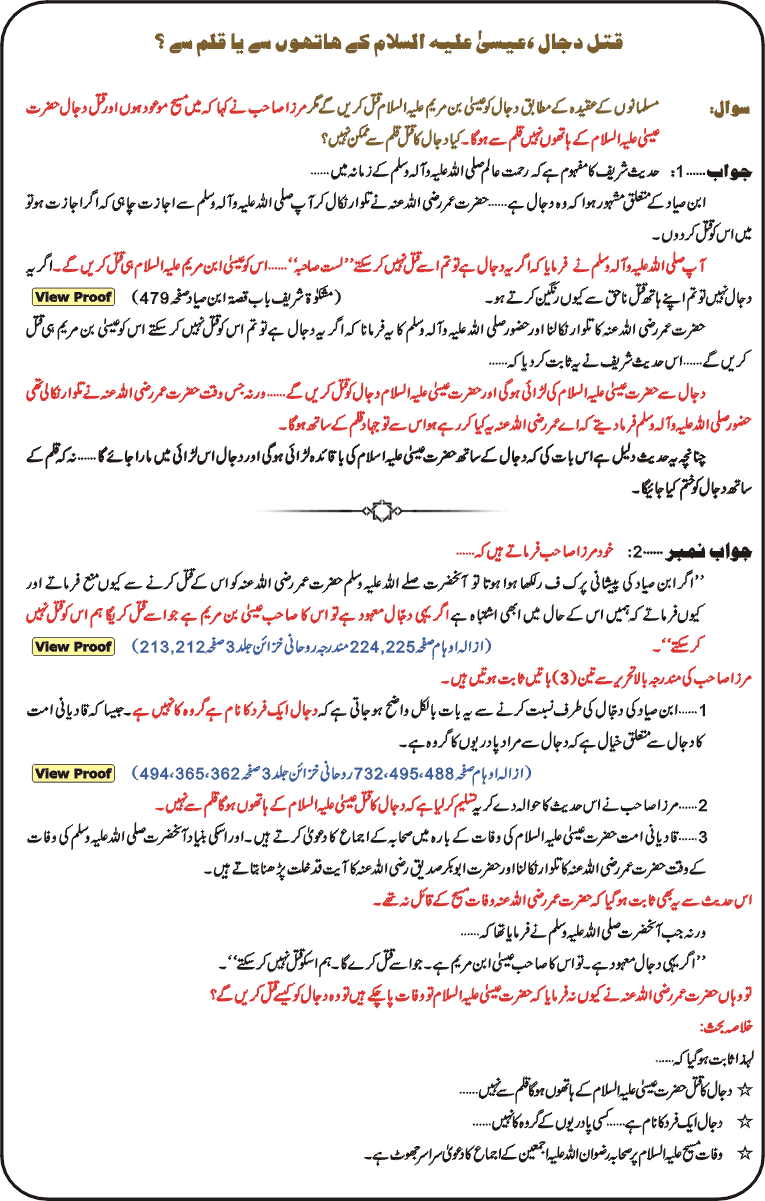 قتل دجال ،عیسیٰ علیہ السلام کے ہاتھوں سے یا قلم سے ؟
سوال: مسلمانوں کے عقیدہ کے مطابق دجال کو عیسیٰ بن مریم علیہ السلام قتل کریں گے مگر مرزا صاحب نے کہا کہ میں مسیح موعود ہوں اور قتل دجال حضرت
عیسیٰ علیہ السلام کے ہاتھوں نہیں قلم سے ہوگا۔ کیا دجال کا قتل قلم سے ممکن نہیں؟
جواب......1: حدیث شریف کا مفہوم ہے کہ رحمت عالم صلی اللہ علیہ وآلہ وسلم کے زمانہ میں......
ابن صیاد کے متعلق مشہور ہوا کہ وہ دجال ہے......حضرت عمر رضی اللہ عنہ نے تلوار نکال کر آپ صلی اللہ علیہ وآلہ وسلم سے اجازت چاہی کہ اگر اجازت ہو تو
میں اس کو قتل کردوں۔
آپ صلی اللہ علیہ وآلہ وسلم نے فرمایا کہ اگر یہ دجال ہے تو تم اسے قتل نہیں کر سکتے ’’لست صاحبہ‘‘......اس کو عیسیٰ ابن مریم علیہ السلام ہی قتل کریں گے۔ اگر یہ
دجال نہیں تو تم اپنے ہاتھ قتل ناحق سے کیوں رنگین کرتے ہو۔ (مشکوٰۃ شریف باب قصۃ ابن صیاد صفحہ 479) View Proof
حضرت عمر رضی اللہ عنہ کا تلوار نکالنا اور حضور صلی اللہ علیہ وآلہ وسلم کا یہ فرمانا کہ اگر یہ دجال ہے تو تم اس کو قتل نہیں کر سکتے اس کو عیسیٰ بن مریم ہی قتل
کریں گے......اس حدیث شریف نے یہ ثابت کر دیا کہ......
دجال سے حضرت عیسیٰ علیہ السلام کی لڑائی ہوگی اور حضرت عیسیٰ علیہ السلام دجال کو قتل کریں گے......ورنہ جس وقت حضرت عمر رضی اللہ عنہ نے تلوار نکالی تھی
حضور صلی اللہ علیہ وآلہ وسلم فرما دیتے کہ اے عمر رضی اللہ عنہ یہ کیا کر رہے ہو اس سے تو جہاد قلم کے ساتھ ہوگا۔
چنانچہ یہ حدیث دلیل ہے اس بات کی کہ دجال کے ساتھ حضرت عیسیٰ علیہ اسلام کی باقائدہ لڑائی ہوگی اور دجال اس لڑائی میں مارا جائے گا......نہ کہ قلم کے
ساتھ دجال کو ختم کیا جائیگا۔
جواب نمبر......2: خود مرزا صاحب فرماتے ہیں کہ......
’’اگر ابن صیاد کی پیشانی پر ک ف ر لکھا ہوا ہوتا تو آنحضرت صلے اللہ علیہ وسلم حضرت عمر رضی اللہ عنہ کو اس کے قتل کرنے سے کیوں منع فرماتے اور
کیوں فرماتے کہ ہمیں اس کے حال میں ابھی اشتباہ ہے اگر یہی دجال معہود ہے تو اس کا صاحب عیسیٰ بن مریم ہے جو اسے قتل کریگا ہم اس کو قتل نہیں
کر سکتے‘‘۔ (ازالہ اوہام صفحہ 224,225 مندرجہ روحانی خزائن جلد 3 صفحہ 213,212) View Proof
مرزا صاحب کی مندرجہ بالا تحریر سے تین (3) باتیں ثابت ہوتیں ہیں۔
1......ابن صیاد کی دجال کی طرف نسبت کرنے سے یہ بات بالکل واضح ہو جاتی ہے کہ دجال ایک فرد کا نام ہے گروہ کا نہیں ہے۔ جیسا کہ قادیانی امت
کا دجال سے متعلق خیال ہے کہ دجال سے مراد پادریوں کا گروہ ہے۔
(ازالہ اوہام صفحہ 732،495،488 روحانی خزائن جلد 3 صفحہ 494،365،362) View Proof
2......مرزا صاحب نے اس حدیث کا حوالہ دے کر یہ تسلیم کر لیا ہے کہ دجال کا قتل عیسیٰ علیہ السلام کے ہاتھوں ہوگا قلم سے نہیں۔
3......قادیانی امت حضرت عیسیٰ علیہ السلام کی وفات کے بارہ میں صحابہ کے اجماع کا دعویٰ کرتے ہیں۔ اور اسکی بنیاد آنحضرت صلی اللہ علیہ وسلم کی وفات
کے وقت حضرت عمر رضی اللہ عنہ کا تلوار نکالنا اور حضرت ابو بکر صدیق رضی اللہ عنہ کا آیت قد خلت پڑھنا بتاتے ہیں۔
اس حدیث سے یہ بھی ثابت ہو گیا کہ حضرت عمر رضی اللہ عنہ وفات مسیح کے قائل نہ تھے۔
ورنہ جب آنحضرت صلی اللہ علیہ وسلم نے فرمایا تھا کہ......
’’اگر یہی دجال معہود ہے۔ تو اس کا صاحب عیسیٰ ابن مریم ہے۔ جو اسے قتل کرے گا۔ ہم اسکو قتل نہیں کر سکتے‘‘۔
تو وہاں حضرت عمر رضی اللہ عنہ نے کیوں نہ فرمایا کہ حضرت عیسیٰ علیہ السلام تو وفات پا چکے ہیں تو وہ دجال کو کیسے قتل کریں گے؟
خلاصہ بحث:
لہذا ثابت ہو گیا کہ......
☆ دجال کا قتل حضرت عیسیٰ علیہ السلام کے ہاتھوں ہوگا قلم سے نہیں......
☆ دجال ایک فرد کا نام ہے......کسی پادریوں کے گروہ کا نہیں......
☆ وفات مسیح علیہ السلام پر صحابہ رضوان اللہ علیہ اجمعین کے اجماع کا دعویٰ سراسر جھوٹ ہے۔